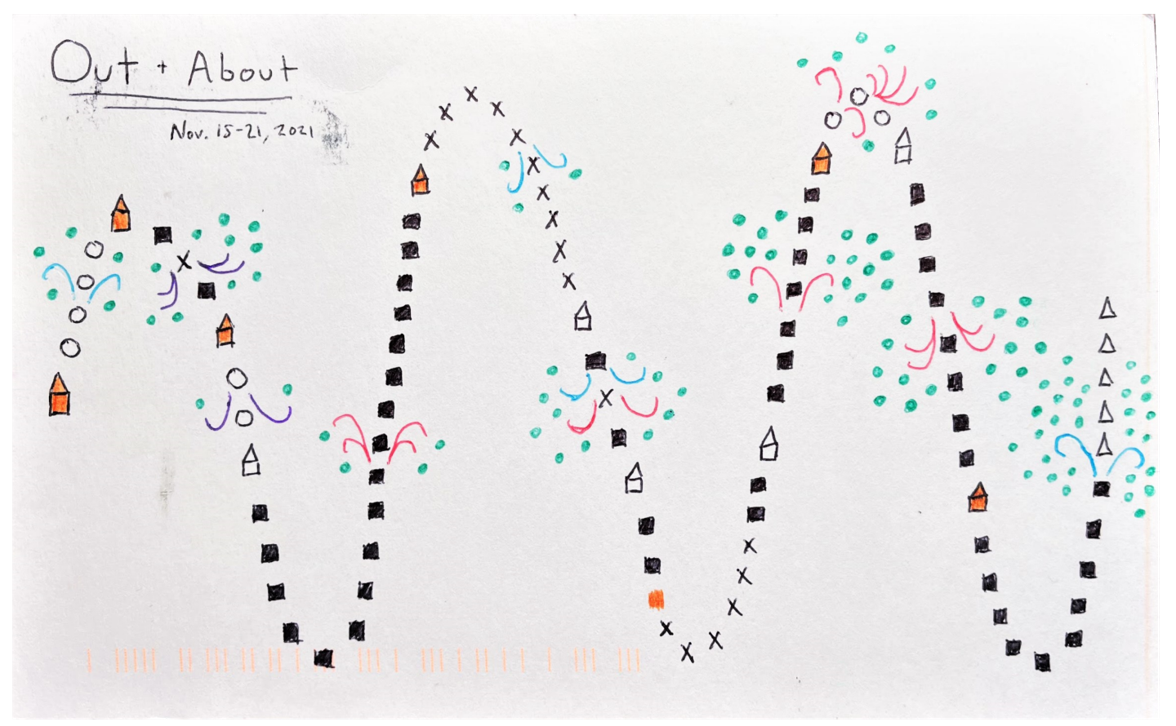 Out + About
Nov. 15-21, 2021